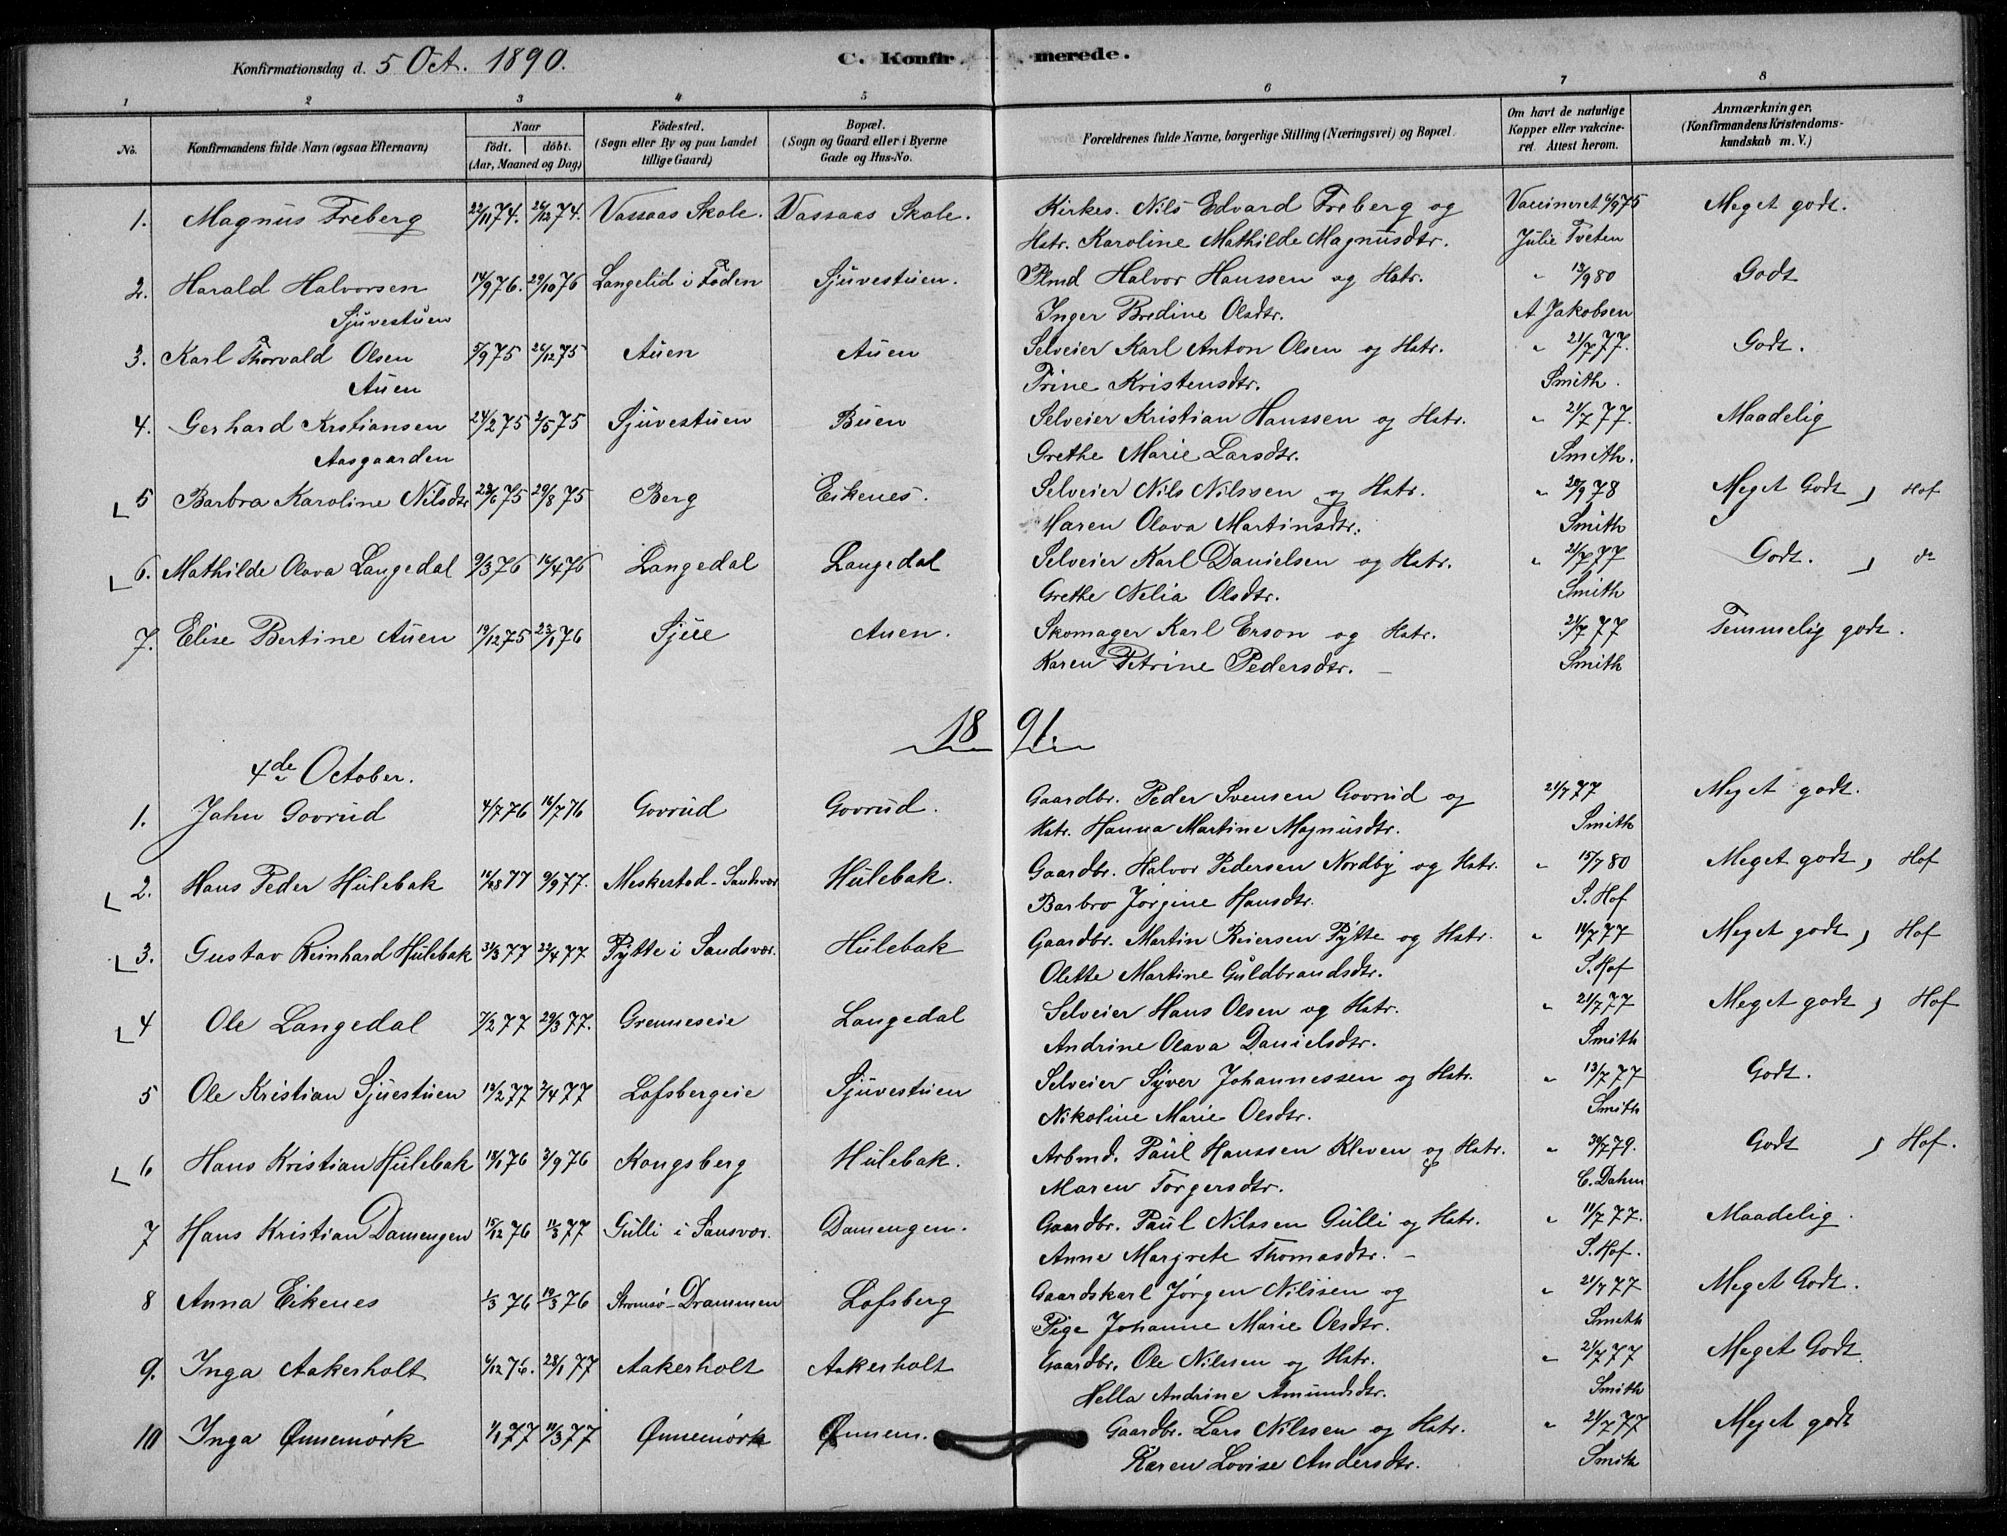 Konfirmationsdag d. 5 Oct. 1890. C. Konfirmerede.
1 2 3 4 5 6 7 8
No. Konfirmandens fulde Navn (ogsaa Efternavn) Naar født. døbt. (Aar, Maaned og Dag) Fødested. (Sogn eller By og paa Landet tillige Gaard) Bopæl. (Sogn og Gaard eller i Byerne Gade og Hus-No. Forældrenes fulde Navne, borgerlige Stilling (Næringsvei) og Bopæl. Om havt de naturlige Kopper eller vakcineret. Attest herom. Anmærkninger. (Konfirmandens Kristendomskundskab m. V.)
1. Magnus Freberg 22/11 74. 26/12 74. Vassaas Skole. Vassaas Skole. Kirkes. Nils Edvard Freberg og Vaccineret 6/9 75 Meget godt.
Hstr. Karoline Mathilde Magnusdtr. Julie Tveten
2. Harald Halvorsen 14/9 76. 29/10 76 Langelid i Foden Sjuvestuen. Plmd Halvor Hanssen og Hstr. " 13/9 80 Godt
Sjuvestuen Inger Bredine Olsdtr. A Jakobsen
3. Karl Thorvald Olsen 5/9 75 26/12 75 Auen Auen Selveier Karl Anton Olsen og Hstr. " 21/7 77. Godt.
Auen Trine Kristensdtr. Smith.
4. Gerhard Kristiansen 24/2 75 2/5 75 Sjuvestuen Buen Selveier Kristian Hanssen og Hstr. " 21/7 77. Maadelig
Aasgaarden Grethe Marie Larsdtr. Smith.
5 Barbra Karoline Nilsdtr 23/6 75 29/8 75 Berg Eikenes. Selveier Nils Nilssen og Hstr. " 20/9 78 Meget Godt, Hof
Maren Olava Martinsdtr. Smith
6. Mathilde Olava Langedal 9/3 76 16/4 76 Langedal Langedal Selveier Karl Danielsen og Hstr. " 21/7 77 Godt. , do
Grethe Nelia Olsdtr. Smith
7. Elise Bertine Auen 19/12 75 23/1 76 Sjue Auen. Skomager Karl Erson og Hstr. 21/7 77 Temmelig godt.
Karen Petrine Pedersdtr. – Smith
1891.
4de October.
1. Jahn Govrud 4/7 76 16/7 76 Govrud Govrud. Gaardbr. Peder Svensen Govrud og 21/7 77 Meget godt.
Hstr. Hanna Martine Magnusdtr. Smith
2. Hans Peder Hulebak 14/8 77 9/9 77. Meskestad - Sandsvær Hulebak. Gaardbr. Halvor Pedersen Nordby og Hstr. " 15/7 80 Meget godt, Hof
Barbro Jørgine Hansdtr. S. Hof
3. Gustav Reinhard Hulebak 31/3 77 22/4 77 Pytte i Sandsvær. Hulebak Gaardbr. Martin Reiersen Pytte og Hstr. " 11/7 77 Meget godt, Hof
Olette Martine Guldbrandsdtr. S. Hof
4 Ole Langedal 7/2 77 29/3 77. Grenneseie Langedal Selveier Hans Olsen og Hstr. " 21/7 77 Meget godt, Hof
Andrine Olava Danielsdtr. Smith
5 Ole Kristian Sjuestuen 19/2 77 2/4 77 Lofsbergeie Sjuvestuen Selveier Syver Johannessen og Hstr. " 13/7 77 Godt.
Nikoline Marie Olsdtr. Smith
6 Hans Kristian Hulebak 18/1 76 3/9 76 Kongsberg Hulebak. Arbmd. Paul Hanssen Kleven og Hstr. " 30/7 79. Godt , Hof.
Maren Torgersdtr. C. Dahm
7 Hans Kristian Damengen 15/12 76 11/3 77 Gulli i Sansvær. Damengen. Gaardbr. Paul Nilssen Gulli og Hstr. " 11/7 77. Maadelig.
Anne Margrete Thomasdtr. – S. Hof.
8 Anna Eikenes 1/3 76 19/3 76 Strømsø - Drammen Lofsberg Gaardskarl Jørgen Nilssen og " 21/7 77 Meget Godt.
Pige Johanne Marie Olsdtr. Smith
9. Inga Aakerholt 6/12 76. 28/1 77 Aakerholt Aakerholt Gaardbr. Ole Nilssen og Hstr. " 21/7 77 Meget Godt.
Hella Andrine Amundsdtr. Smith
10 Inga Ønnemørk 1/1 77 11/3 77 Ønnemørk Ønnem. Gaardbr. Lars Nilssen og Hstr. " 21/7 77 Meget godt
Karen Lovise Andersdtr. Smith